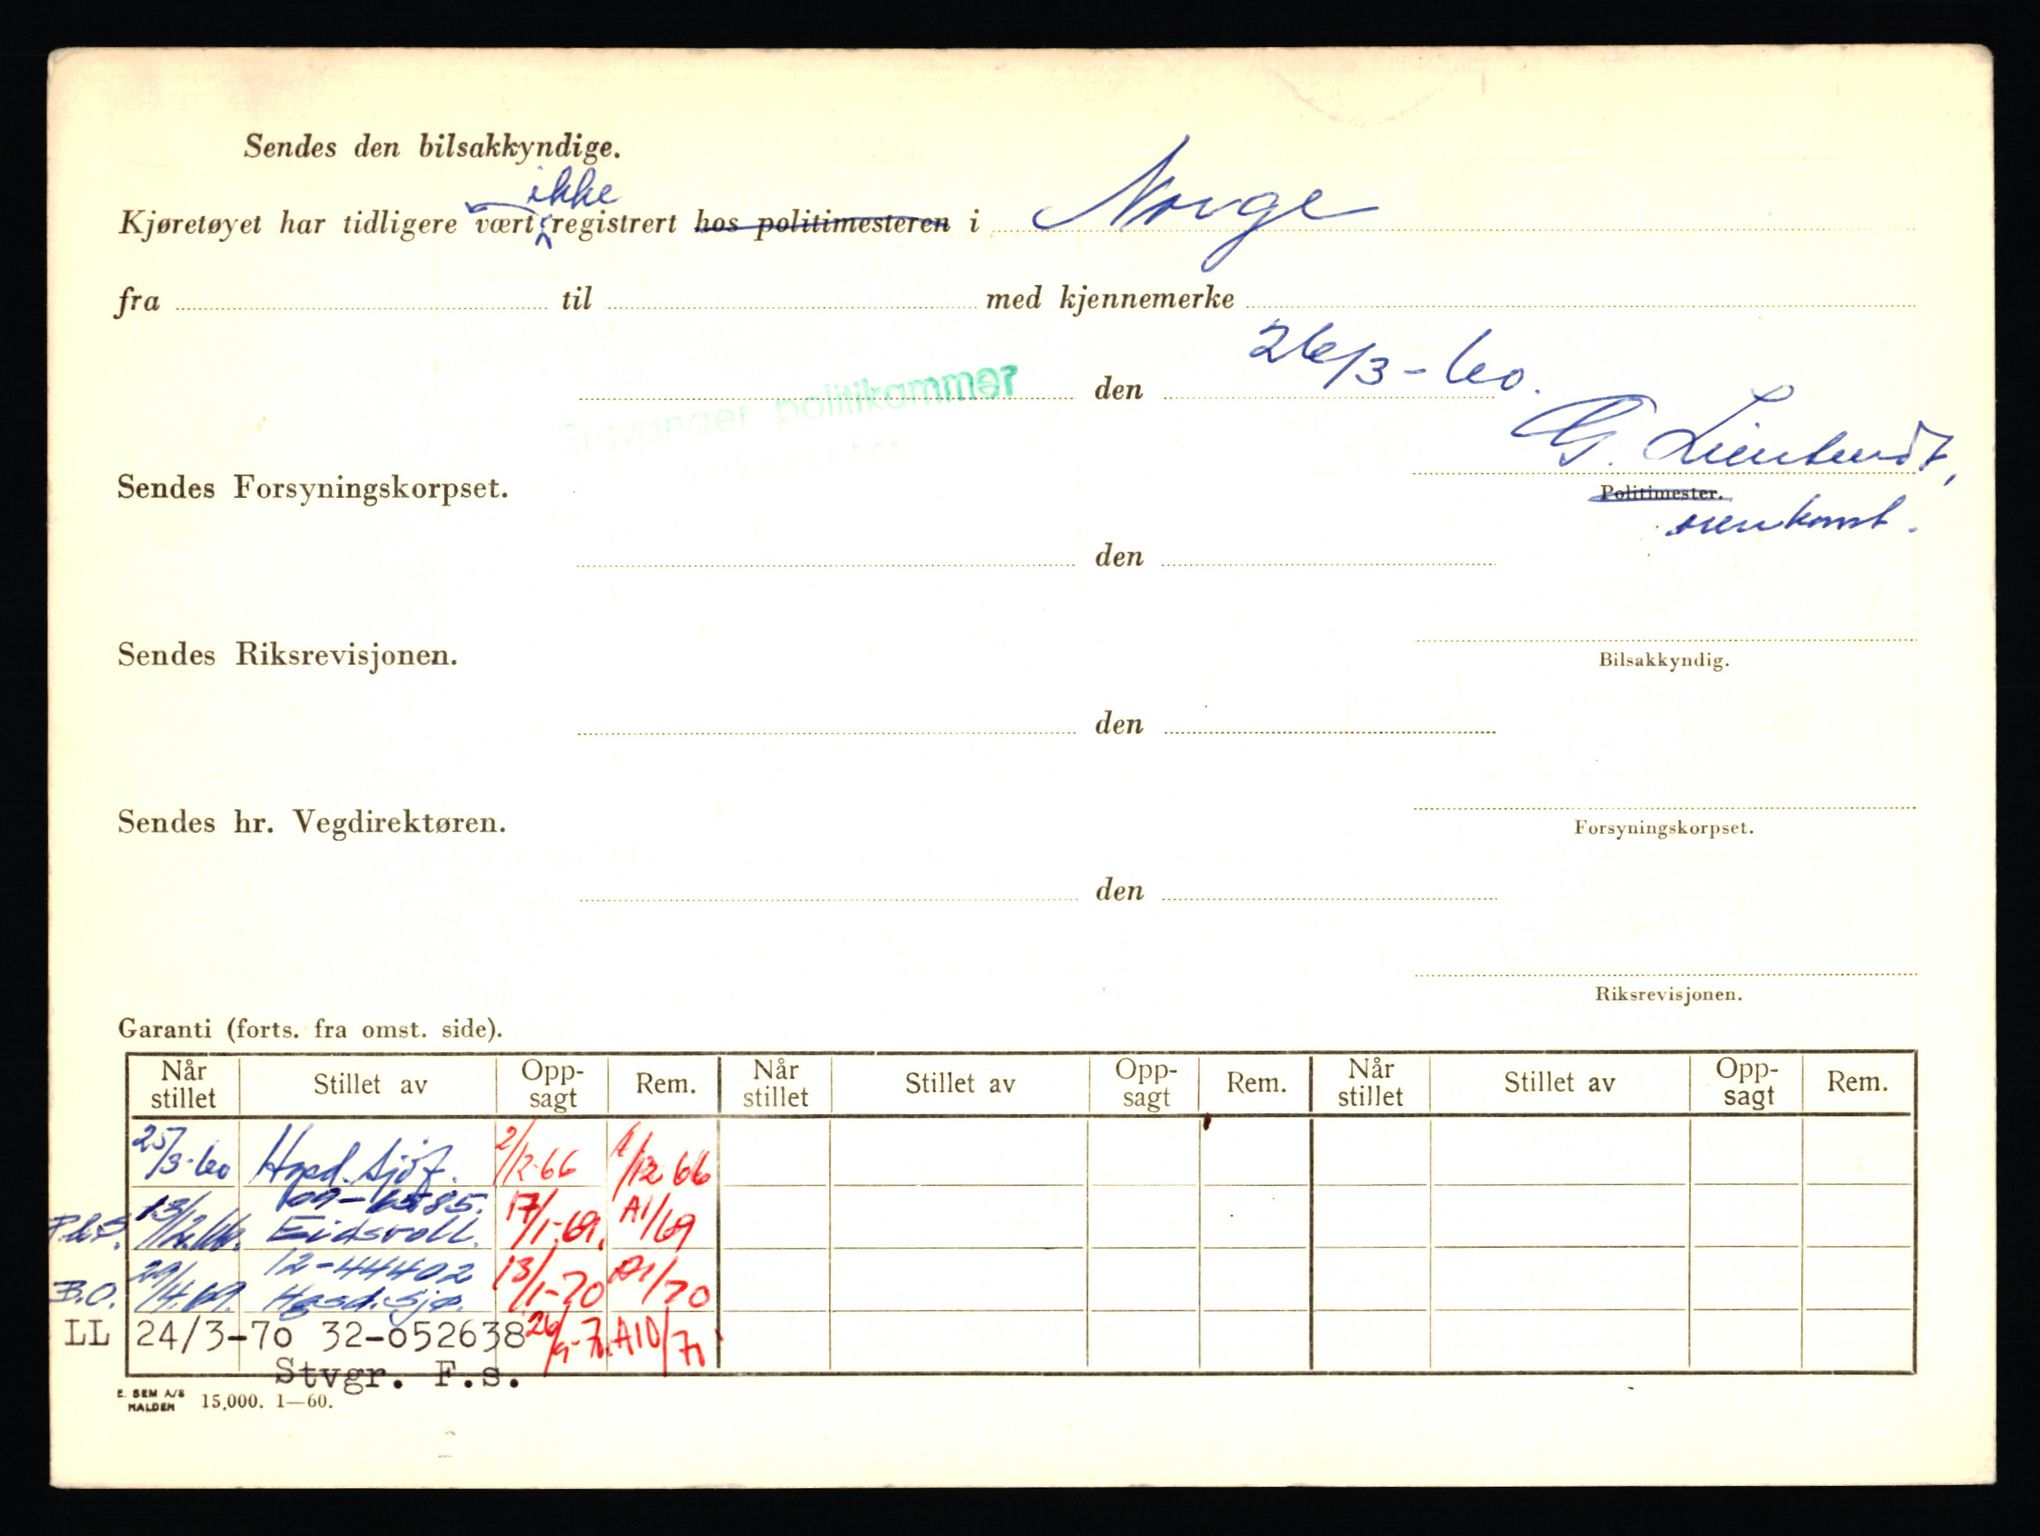 Sendes den bilsakkyndige.
ikke
Kjøretøyet har tidligere vært registrert hos politimesteren i Norge
fra til med kjennemerke
politikammer den 26/3-60.
Sendes Forsyningskorpset.
Politimester.
den
Sendes Riksrevisjonen.
Bilsakkyndig.
den
Sendes hr. Vegdirektøren.
Forsyningskorpset.
den
Riksrevisjonen.
Garanti (forts. fra omst. side).
Når stillet Stillet av Opp-sagt Rem. Når stillet Stillet av Opp-sagt Rem. Når stillet Stillet av Opp-sagt Rem.
25/3-60 Hord. Sjøf. 2/12-66 1/12 66
13/12.66. Eidsvoll. 17/1-69. A1/69
12-44402
B.O. 29/4.69. 13/1-70 A1/70
LL 24/3-70 32-052638 A10/71
Stvgr. F.s.
E. SEM A/S HALDEN 15.000. 1—60.